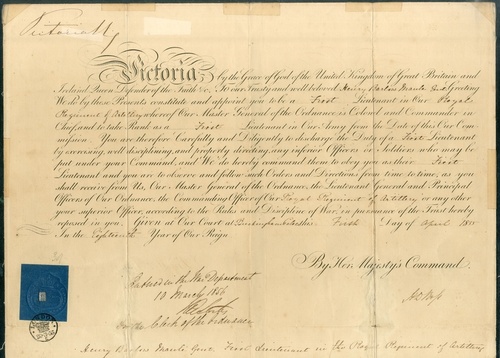 Victoria R
Victoria by the Grace of God of the United Kingdom of Great Britain and
Ireland Queen Defender of the Faith &c. To our Trusty and well beloved Henry Gent Greeting
We do by these Presents constitute and appoint you to be a First Lieutenant in Our Royal
Regiment of Artillery whereof Our Master General of the Ordnance is Colonel and Commander in
Chief, and to take Rank as a First Lieutenant in Our Army from the Date of this Our Com
mission. You are therefore Carefully and Diligently to discharge the Duty of First Lieutenant
by exercising, well disciplining, and properly directing, any inferior Officers or Soldiers who may be
put under your Command, and We do hereby command them to obey you as their First
Lieutenant and you are to observe and follow such Orders and Directions from time to time, as you
shall receive from Us, Our Master General of the Ordnance, the Lieutenant General and Principal
Officers of Our Ordnance, the Commanding Officer of Our Royal Regiment of Artillery or any other
your superior Officer, according to the Rules and Discipline of War, in pursuance of the Trust hereby
reposed in you. Given at Our Court at Day of April 1855
In the Eighteenth Year of Our Reign
By Her Majesty's Command
Entered in the War Department
13 March 1856
For the Clerk of the Ordnance
Henry Gent First Lieutenant in the Royal Regiment of Artillery